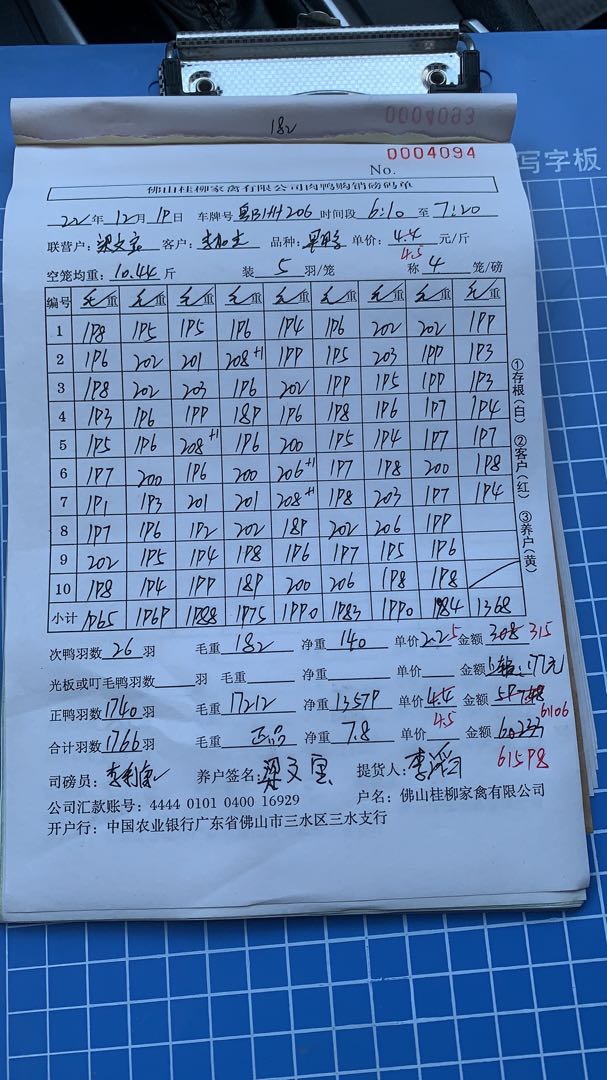 0004093
182
写字板
No. 0004094
佛山桂柳家禽有限公司肉鸭购销磅码单
22年12月19日 车牌号 粤B1HH206 时间段 6:10 至 7:20
联营户: 客户: 品种: 单价: 4.4 元/斤
4.5
空笼均重: 10.44 斤 装 5 羽/笼 称 4 笼/磅
编号 毛重 毛重 毛重 毛重 毛重 毛重 毛重 毛重 毛重
1 198 195 195 196 194 196 202 202 199
2 196 202 201 208+1 199 195 203 199 193
3 198 202 203 196 202 199 195 199 193
4 193 196 199 189 196 198 196 197 194
5 195 196 208+1 196 200 195 194 197 197
6 197 200 196 200 206+1 197 198 200 198
7 191 193 201 201 208+1 198 203 197 194
8 197 196 192 202 189 202 206 199
9 202 195 194 198 196 197 195 196
10 198 194 199 189 200 206 198 198
小计 1965 1969 1988 1975 1990 1983 1990 1984 1368
①存根(白) ②客户(红) ③养户(黄)
次鸭羽数 26 羽 毛重 182 净重 140 单价 2.2 5 金额 308 315
光板或叮毛鸭羽数 羽 毛重 净重 单价 金额 177元
正鸭羽数 1740 羽 毛重 17212 净重 13579 单价 4.4 金额
4.5 61106
合计羽数 1766 羽 毛重 正品 净重 7.8 单价 金额 60233
61598
司磅员: 养户签名: 梁文宽 提货人:
公司汇款账号: 4444 0101 0400 16929 户名: 佛山桂柳家禽有限公司
开户行: 中国农业银行广东省佛山市三水区三水支行